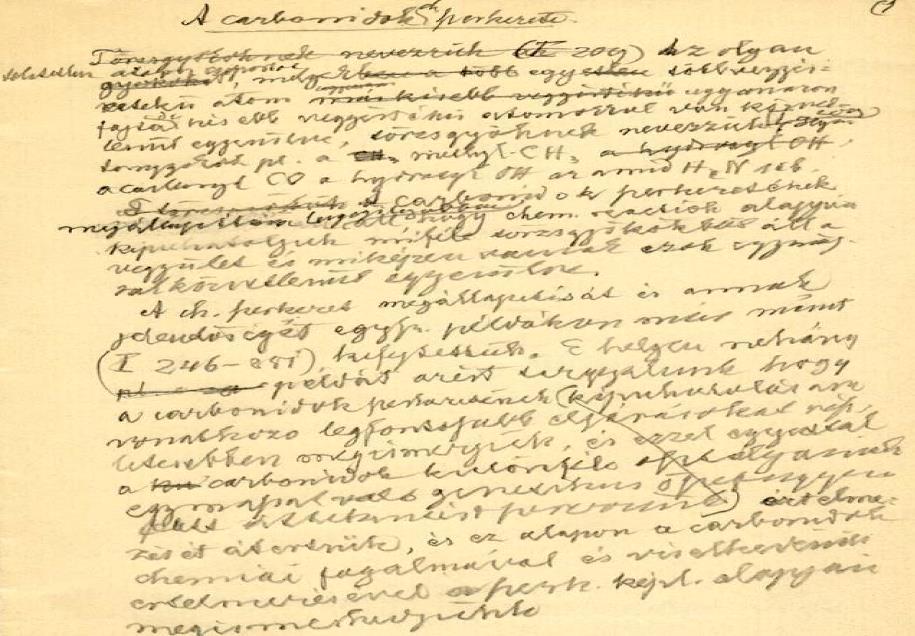 A carbonidok ch. szerkezete.
Törzsgyöknek nevezzük (I 209) Az olyan
telitetlen atom csoportot, mely egyetlen többvegyér-
tékü atom ugyanazon
fajtáju kisebb vegyértékü atomokkal van közvet-
lenül egyesülve, törzsgyöknek nevezzük
pl. a methyl-CH3 a hydroxyl OH
a carbonyl CO a hydroxyl OH az amid H2N stb.
A carbonidok szerkezetének
megállapitása hogy chem. reactiok alapján
kipuhatoljuk miféle törzsgyökökből áll a
vegyület és miképen vannak ezek egymás-
sal közvetlenül egyesülve.
A ch. szerkezet megállapitását és annak
jelentőségét egysz. példákon már mint
(I 246- ) kifejtettük. E helyen nehány
példát azért tárgyalunk hogy
a carbonidok szerkezetének kipuhatolására
vonatkozo legfontosabb eljárásokat rész-
letesebben megismerjük, és ezzel egyuttal
a carbonidok különféle osztályainak
egymással való genetikus összefüggését
értelme-
zését átértsük, és ez alapon a carbonidok
chemiai fogalmával és viselkedésének
értelmezésével a szerk. képl. alapján
megismerkedjünk